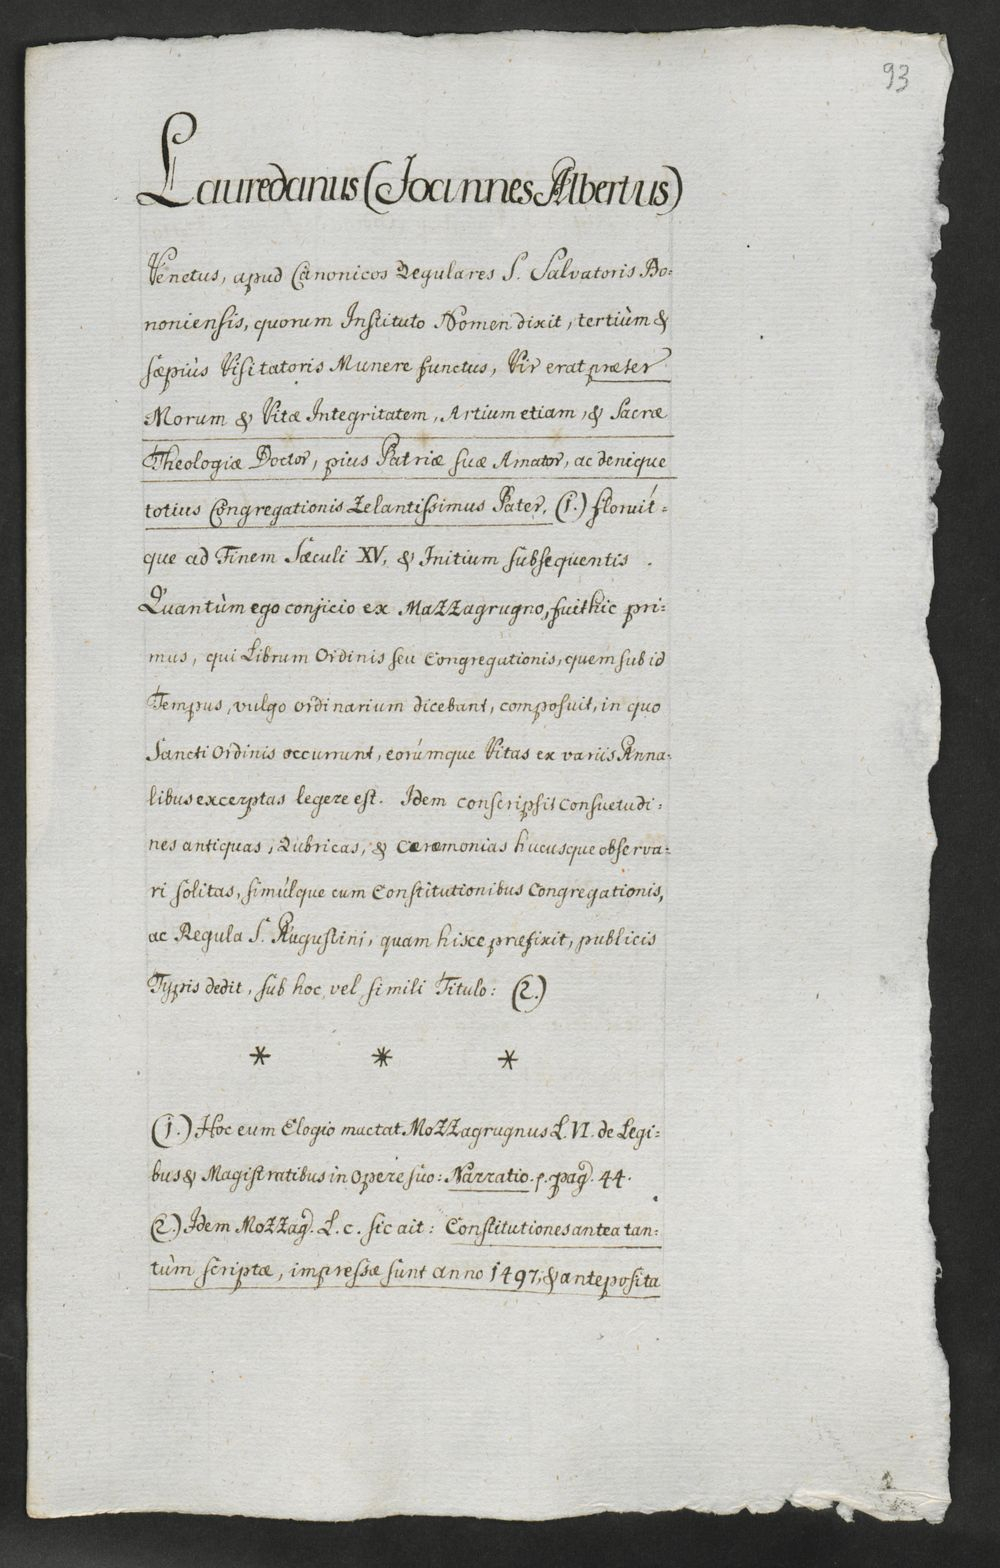 93
Lauredanus (Joannes Albertus)
Venetus, apud Canonicos Regulares S. Salvatoris Bo=
noniensis, quorum Instituto Nomen dixit, tertiùm &
sæpiùs Visitatoris Munere functus, Vir erat præter
Morum & Vitæ Integritatem, Artium etiam, & Sacræ
Theologiæ Doctor, pius Patriæ suæ Amator, ac denique
totius Congregationis Zelantissimus Pater, (1.) floruít=
que ad Finem Sæculi XV, & Initium subsequentis.
Quantùm ego conjicio ex Mazzagrugno, fuit hic pri=
mus, qui Librum Ordinis seu Congregationis, quem sub id
Tempus, vulgo Ordinarium dicebant, composuit, in quo
Sancti Ordinis occurrunt, eorúmque Vitas ex variis Anna=
libus excerptas legere est. Idem conscripsit Consuetudi=
nes antiquas, Rubricas, & Cæremonias hucusque observa=
ri solitas, simúlque cum Constitutionibus Congregationis,
ac Regula S. Augustini, quam hisce præfixit, publicis
Typis dedit, sub hoc, vel simili Titulo: (2.)
* * *
(1.) Hoc eum Elogio mactat Mozzagrugnus L. VI. de Legi=
bus & Magistratibus in Opere suo: Narratio. p. pag. 44.
(2.) Idem Mozzag. L. c. sic ait: Constitutiones antea tan=
tùm scriptæ, impressæ sunt anno 1497, & anteposita